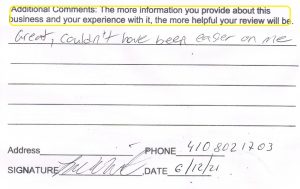 Additional Comments: The more information you provide about this
business and your experience with it, the more helpful your review will be.
Great, couldn't have been easer on me
Address PHONE 4108021703
SIGNATURE DATE 6/12/21